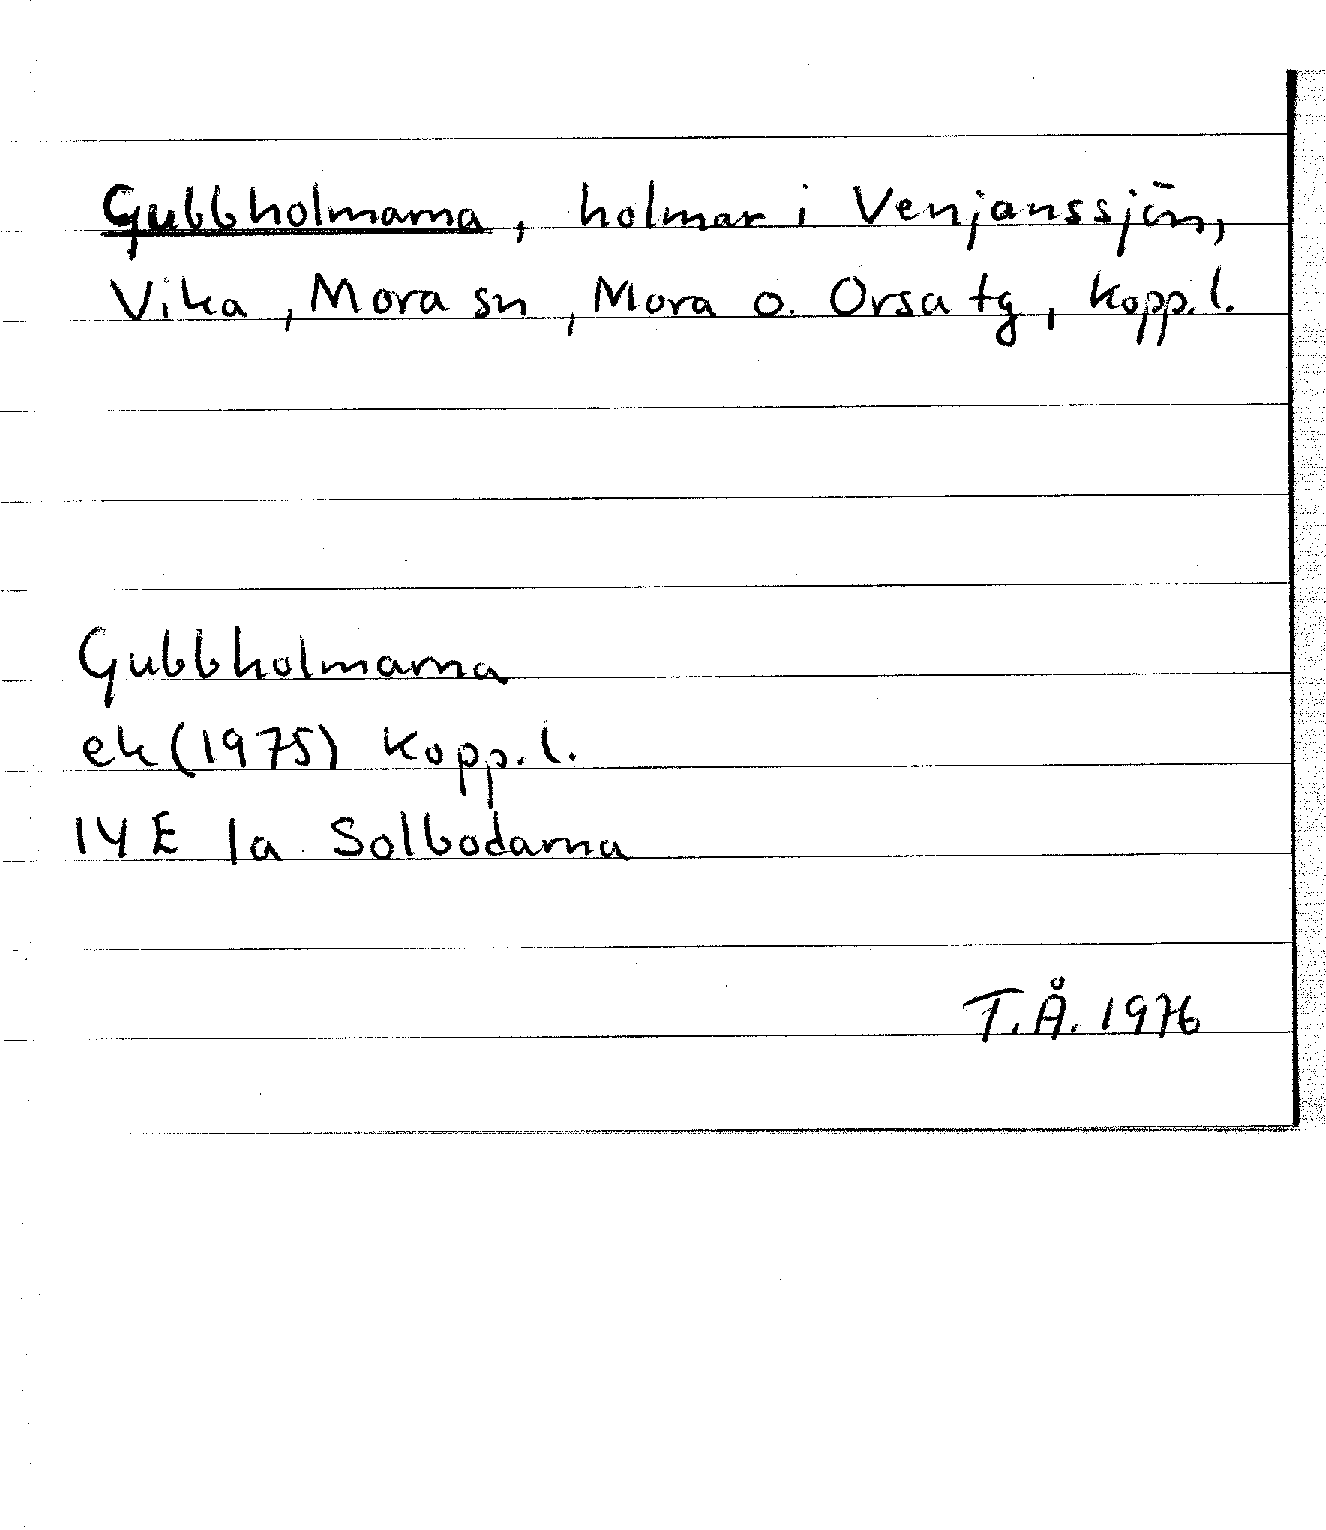 Gubbholmarna, holmar i Venjanssjön,
Vika, Mora sn, Mora o. Orsa tg, Kopp.l.
Gubbholmarna
ek(1975) Kopp.l.
14E 1a Solbodarna
T.Å. 1976